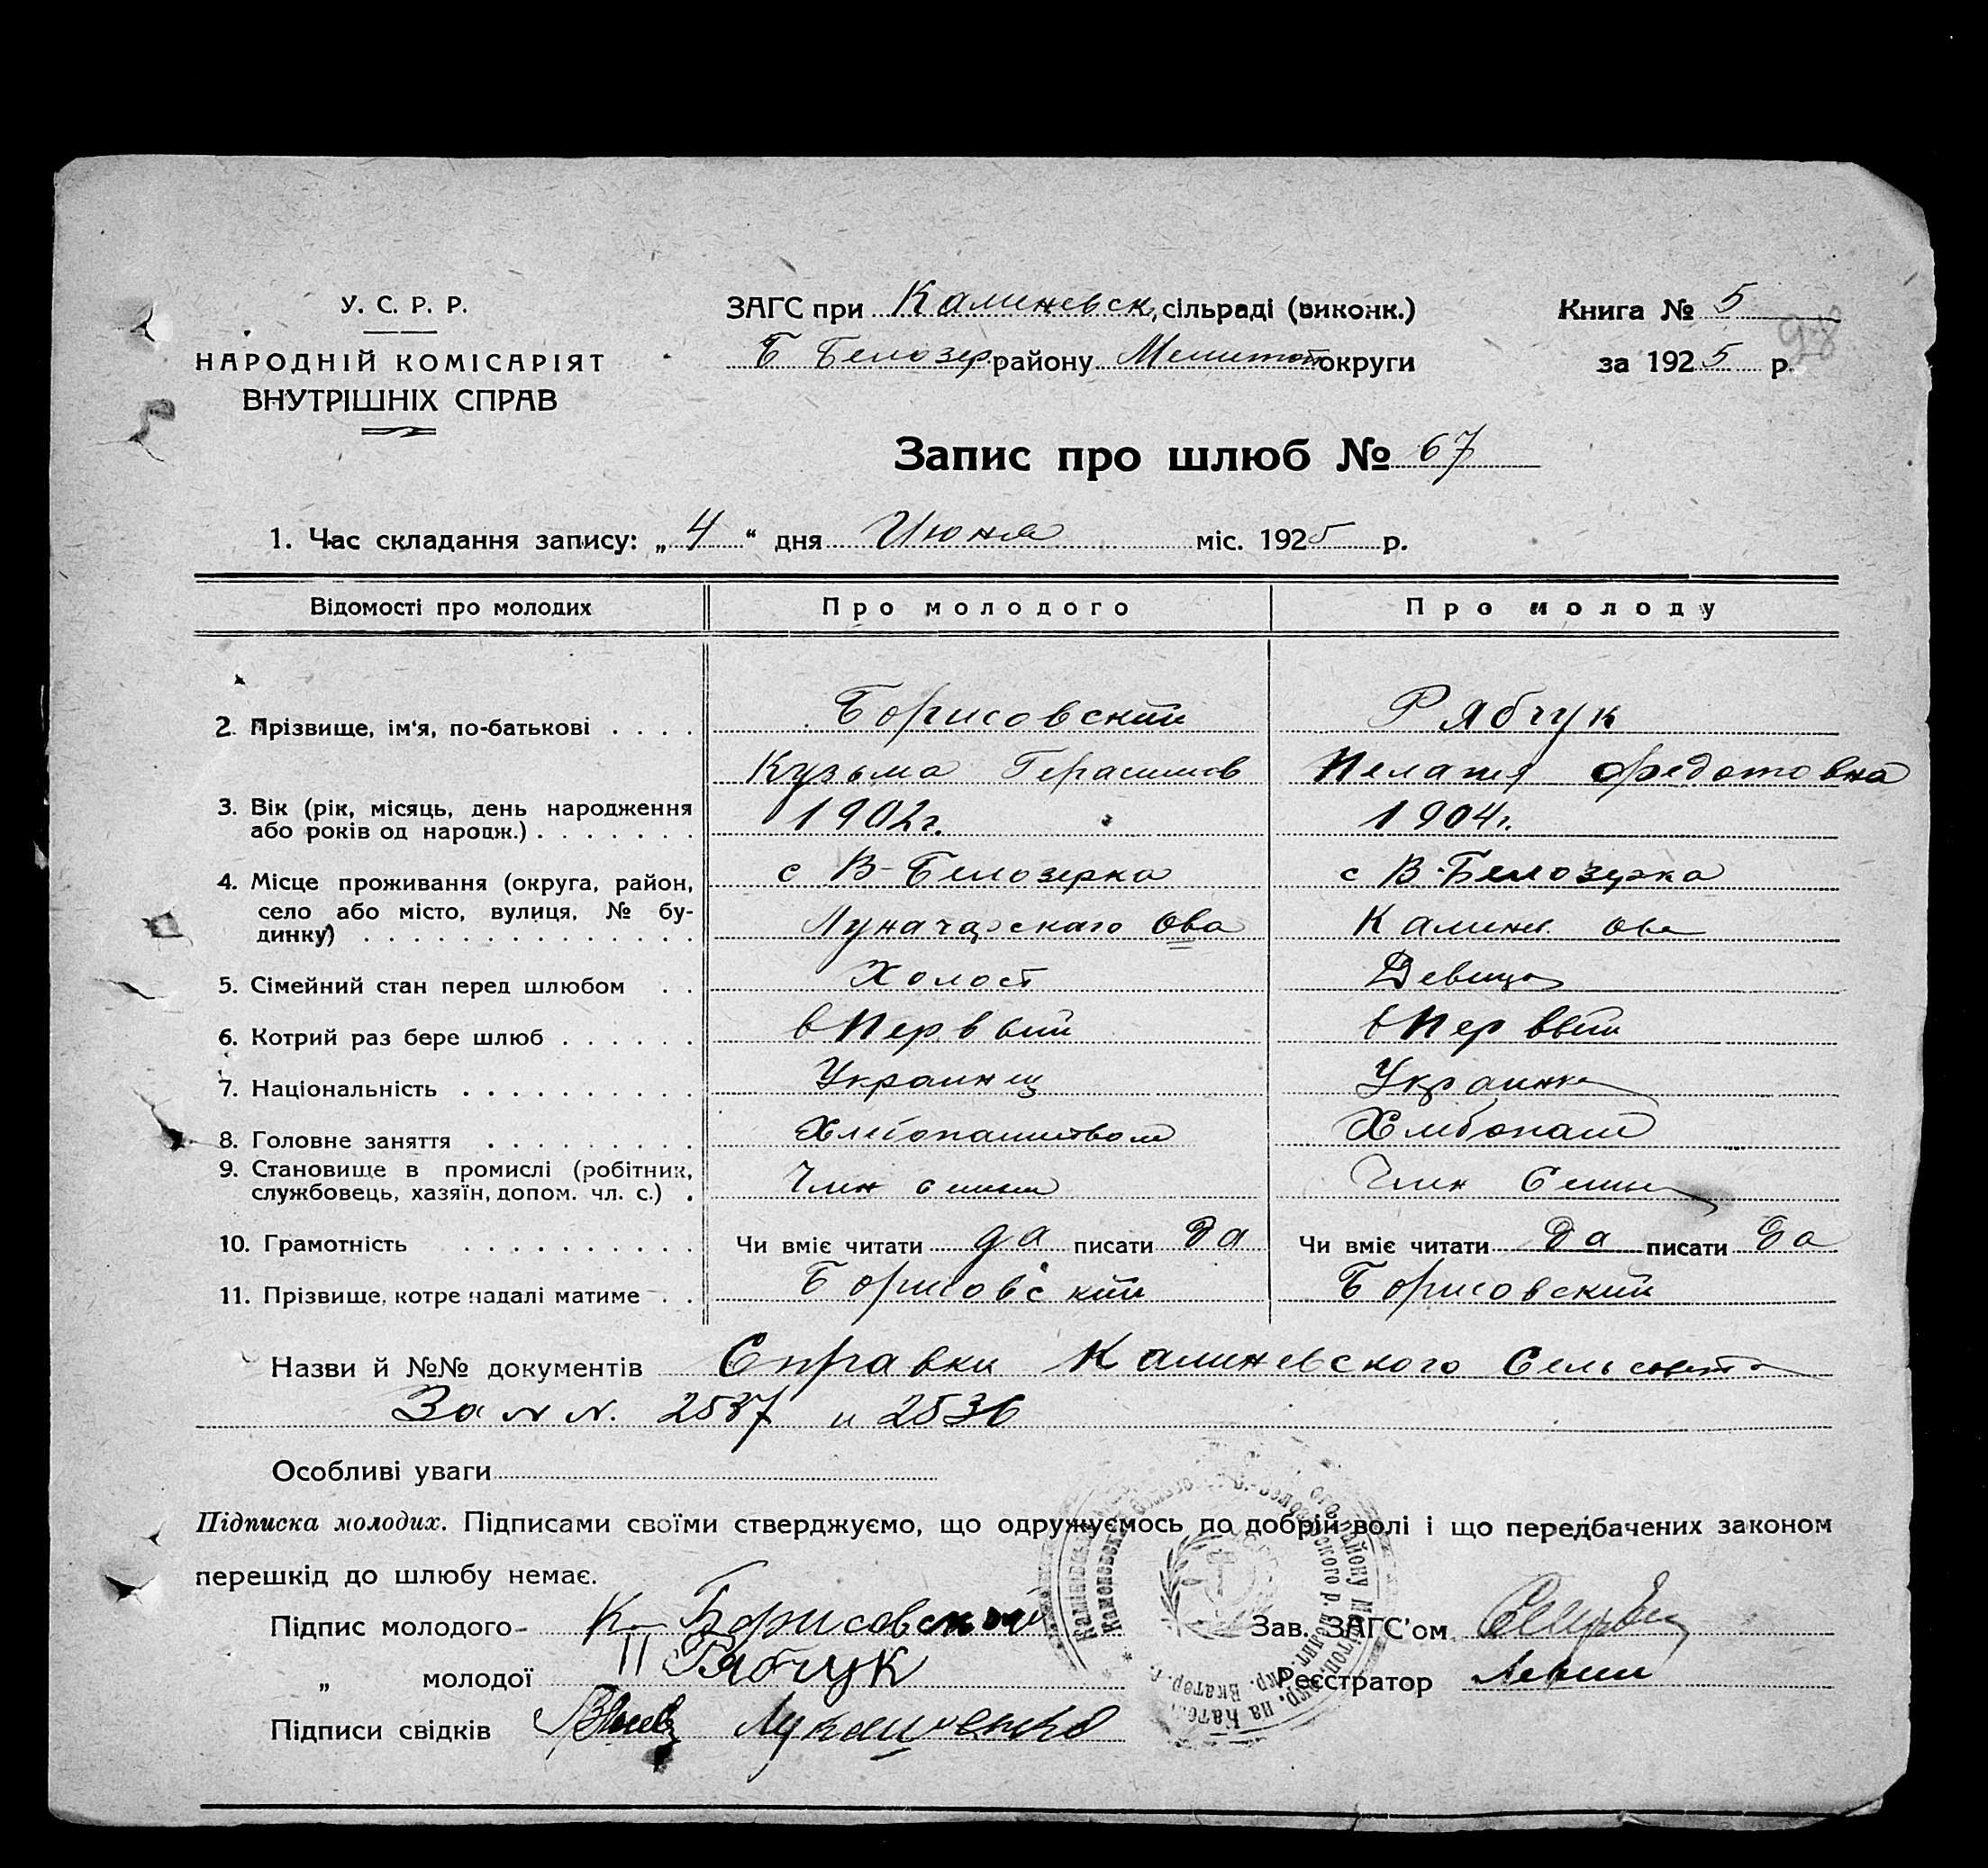 У. С. Р. Р.
НАРОДНІЙ КОМІСАРІЯТ
ВНУТРІШНІХ СПРАВ
ЗАГС при Калиневск, сільраді (виконк.)
Б Белозер району Мелитоп округи
Книга № 5
за 1925 р.
98
Запис про шлюб № 67
1. Час складання запису: „ 4 “ дня Июня міс. 1925 р.
Відомості про молодих Про молодого Про молоду
2. Прізвище, ім'я, по-батькові . . . . Борисовский Рябчук
Кузьма Герасимов Пелагея Федотовна
3. Вік (рік, місяць, день народження 1902г. 1904г.
або років од народж.) . . . . . . .
4. Місце проживання (округа, район, с В-Белозерка с В-Белозерка
село або місто, вулиця, № бу- Луначарскаго Ова Калинев. Ова
динку) . . . . . . . . . . . . . .
5. Сімейний стан перед шлюбом . . Холост Девица
6. Котрий раз бере шлюб . . . . . . в Первый в Первый
7. Національність . . . . . . . . . . Украинец Украинка
8. Головне заняття . . . . . . . . . Хлебопашеством Хлебопаш
9. Становище в промислі (робітник, Член семьи Член Семьи
службовець, хазяїн, допом. чл. с.) .
10. Грамотність . . . . . . . . . . Чи вміє читати да писати да Чи вміє читати да писати да
11. Прізвище, котре надалі матиме . . Борисовский Борисовский
Назви й №№ документів Справки Калиневского Сельсовета
За N N. 2537 и 2536
Особливі уваги
Підписка молодих. Підписами своїми стверджуємо, що одружуємось по добрій волі і що передбачених законом
перешкід до шлюбу немає.
Підпис молодого- К. Борисовский Зав. ЗАГС'ом
„ молодої П Рябчук Реєстратор
Підписи свідків Лукашенко